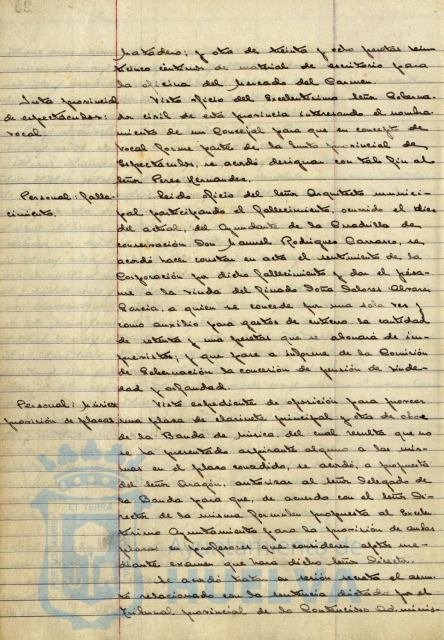 Matadero; y otra de treinta y ocho pesetas vein-
ticinco céntimos de material de escritorio para
la oficina del Mercado del Carmen.
Junta provincial Visto oficio del Excelentísimo Señor Goberna-
de espectáculos: dor civil de esta provincia interesando el nombra-
vocal. miento de un Concejal para que en concepto de
vocal forme parte de la Junta provincial de
Espectáculos, se acordó designar con tal fin al
Señor Perez Hernandez.
Personal: falle- Leido oficio del Señor Arquitecto munici-
cimiento. pal participando el fallecimiento, ocurrido el dice
del actual, del Ayudante de la Cuadrilla de
conservación Don Manuel Rodriguez Carrasco, se
acordó hacer constar en acta el sentimiento de la
Corporación por dicho fallecimiento y dar el pésa-
me a la viuda del finado Doña Dolores Alvarez
Garcia, a quien se concede por una sola vez y
como auxilio para gastos de entierro la cantidad
de setenta y una pesetas que se abonará de im-
previstos, y que pase a informe de la Comisión
de Gobernación la concesión de pensión de viude-
dad y orfandad.
Personal: música Visto expediente de oposición para proveer
provisión de plazas. una plaza de clarinete principal y otra de oboe
de la Banda de música, del cual resulta que no
se ha presentado aspirante alguno a las mis-
mas en el plazo concedido, se acordó, a propuesta
del Señor Aragón, autorizar al Señor Delegado de
la Banda para que, de acuerdo con el Señor Di-
rector de la misma formulen propuesta al Exce-
lentísimo Ayuntamiento para la provisión de ambas
plazas en profesores que consideren aptos me-
diante examen que hará dicho Señor Director.
Se acordó tratar en sesión secreta el asun-
to relacionado con la sentencia dictada por el
Tribunal provincial de lo Contencioso Adminis-